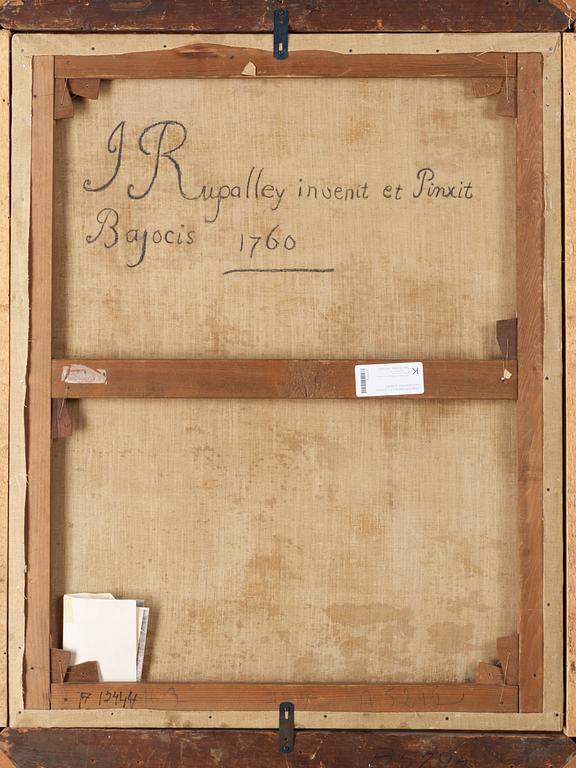 J Rupalley invenit et Pinxit
Bajocis 1760
K
12444